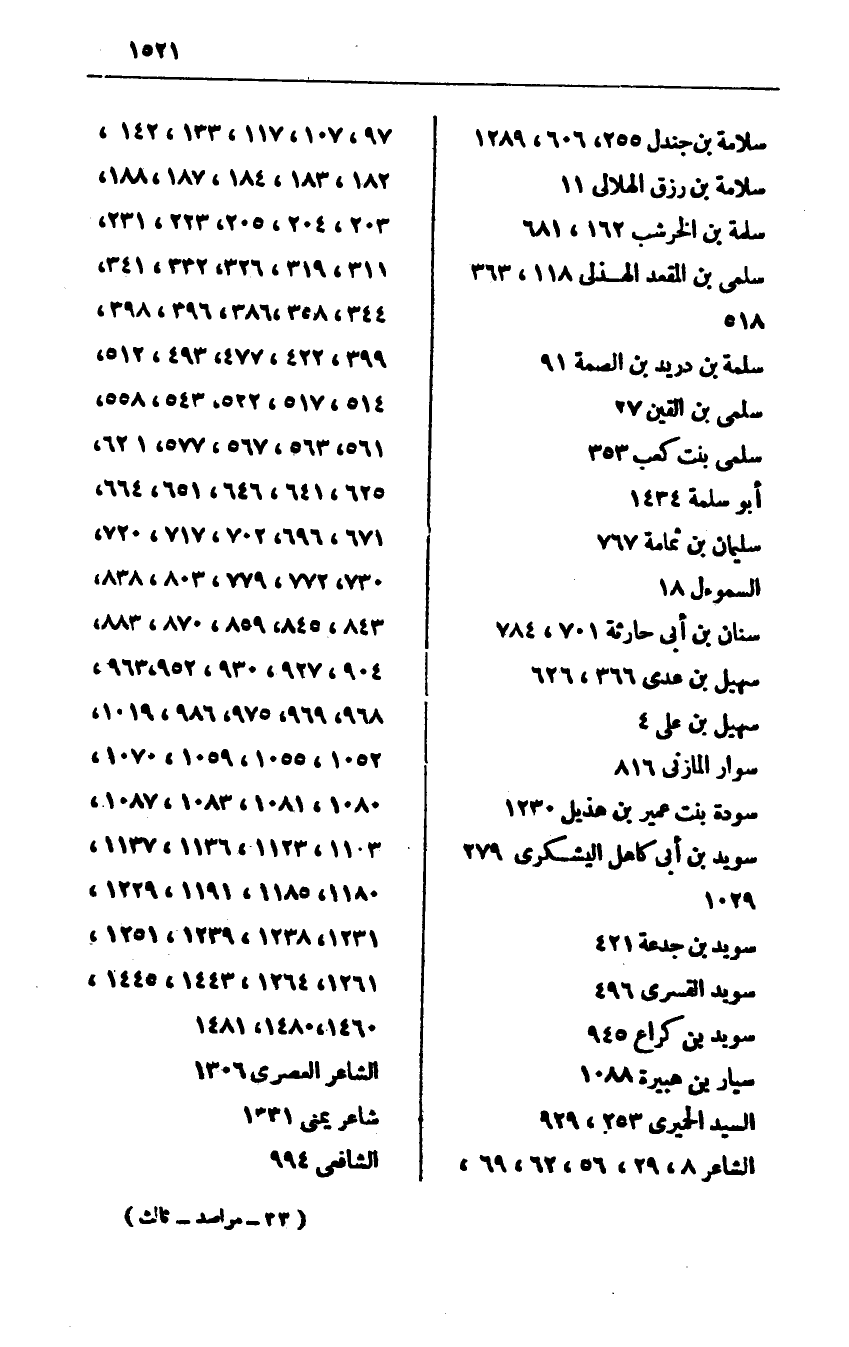 ١٥٢١
سلامة بن جندل ٢٥٥، ٦٠٦ ، ١٢٨٩
سلامة بن رزق الهلالى ١١
سلمة بن الخرشب ١٦٢ ، ٦٨١
سلمى بن المقعد الهذلى ١١٨ ، ٣٦٣
٥١٨
سلمة بن دريد بن الصمة ٩١
سلمى بن القين ٢٧
سلمى بنت كعب ٣٥٣
أبو سلمة ١٤٣٤
سليمان بن ثمامة ٧٦٧
السموءل ١٨
سنان بن أبى حارثة ٧٠١ ، ٧٨٤
سهيل بن عدى ٣٦٦ ، ٦٢٦
سهيل بن على ٤
سوار المازنى ٨١٦
سودة بنت عمير بن هذيل ١٢٣٠
سويد بن أبى كاهل اليشكرى ٢٧٩
١٠٢٩
سويد بن جدعة ٤٢١
سويد القسرى ٤٩٦
سويد بن كراع ٩٤٥
سيار بن هبيرة ١٠٨٨
السيد الحميرى ٢٥٣ ، ٩٢٩
الشاعر ٨ ، ٢٩ ، ٥٦ ، ٦٢ ، ٦٩ ،
٩٧ ، ١٠٧ ، ١١٧ ، ١٣٣ ، ١٤٢ ،
١٨٢ ، ١٨٣ ، ١٨٤ ، ١٨٧ ، ١٨٨،
٢٠٣ ، ٢٠٤ ، ٢٠٥، ٢٢٣ ، ٢٣١،
٣١١ ، ٣١٩ ، ٣٢٦، ٣٣٢ ، ٣٤١،
٣٤٤ ، ٣٥٨ ،٣٨٦ ، ٣٩٦ ، ٣٩٨ ،
٣٩٩ ، ٤٢٢ ، ٤٧٧، ٤٩٣ ، ٥١٢،
٥١٤ ، ٥١٧ ، ٥٢٢، ٥٤٣ ، ٥٥٨،
٥٦١، ٥٦٣ ، ٥٦٧ ، ٥٧٧، ٦٢١،
٦٢٥ ، ٦٤١ ، ٦٤٦ ، ٦٥١ ، ٦٦٤،
٦٧١ ، ٦٩٦، ٧٠٢ ، ٧١٧ ، ٧٢٠،
٧٣٠، ٧٧٢ ، ٧٧٩ ، ٨٠٣ ، ٨٣٨،
٨٤٣ ، ٨٤٥، ٨٥٩ ، ٨٧٠ ، ٨٨٣،
٩٠٤ ، ٩٢٧ ، ٩٣٠ ، ٩٥٢،٩٦٣ ،
٩٦٨، ٩٦٩، ٩٧٥، ٩٨٦ ، ١٠١٩،
١٠٥٢ ، ١٠٥٥ ، ١٠٥٩ ، ١٠٧٠ ،
١٠٨٠ ، ١٠٨١ ، ١٠٨٣ ، ١٠٨٧ ،
١١٠٣ ، ١١٢٣ ، ١١٣٦ ، ١١٣٧ ،
١١٨٠ ، ١١٨٥ ، ١١٩١ ، ١٢٢٩ ،
١٢٣١، ١٢٣٨ ، ١٢٣٩ ، ١٢٥١ ،
١٢٦١، ١٢٦٤ ، ١٤٤٣ ، ١٤٤٥ ،
١٤٦٠،١٤٨٠، ١٤٨١
الشاعر العصرى ١٣٠٦
شاعر يمنى ١٣٣١
الشافعى ٩٩٤
( ٣٣ – مراصد – ثالث )